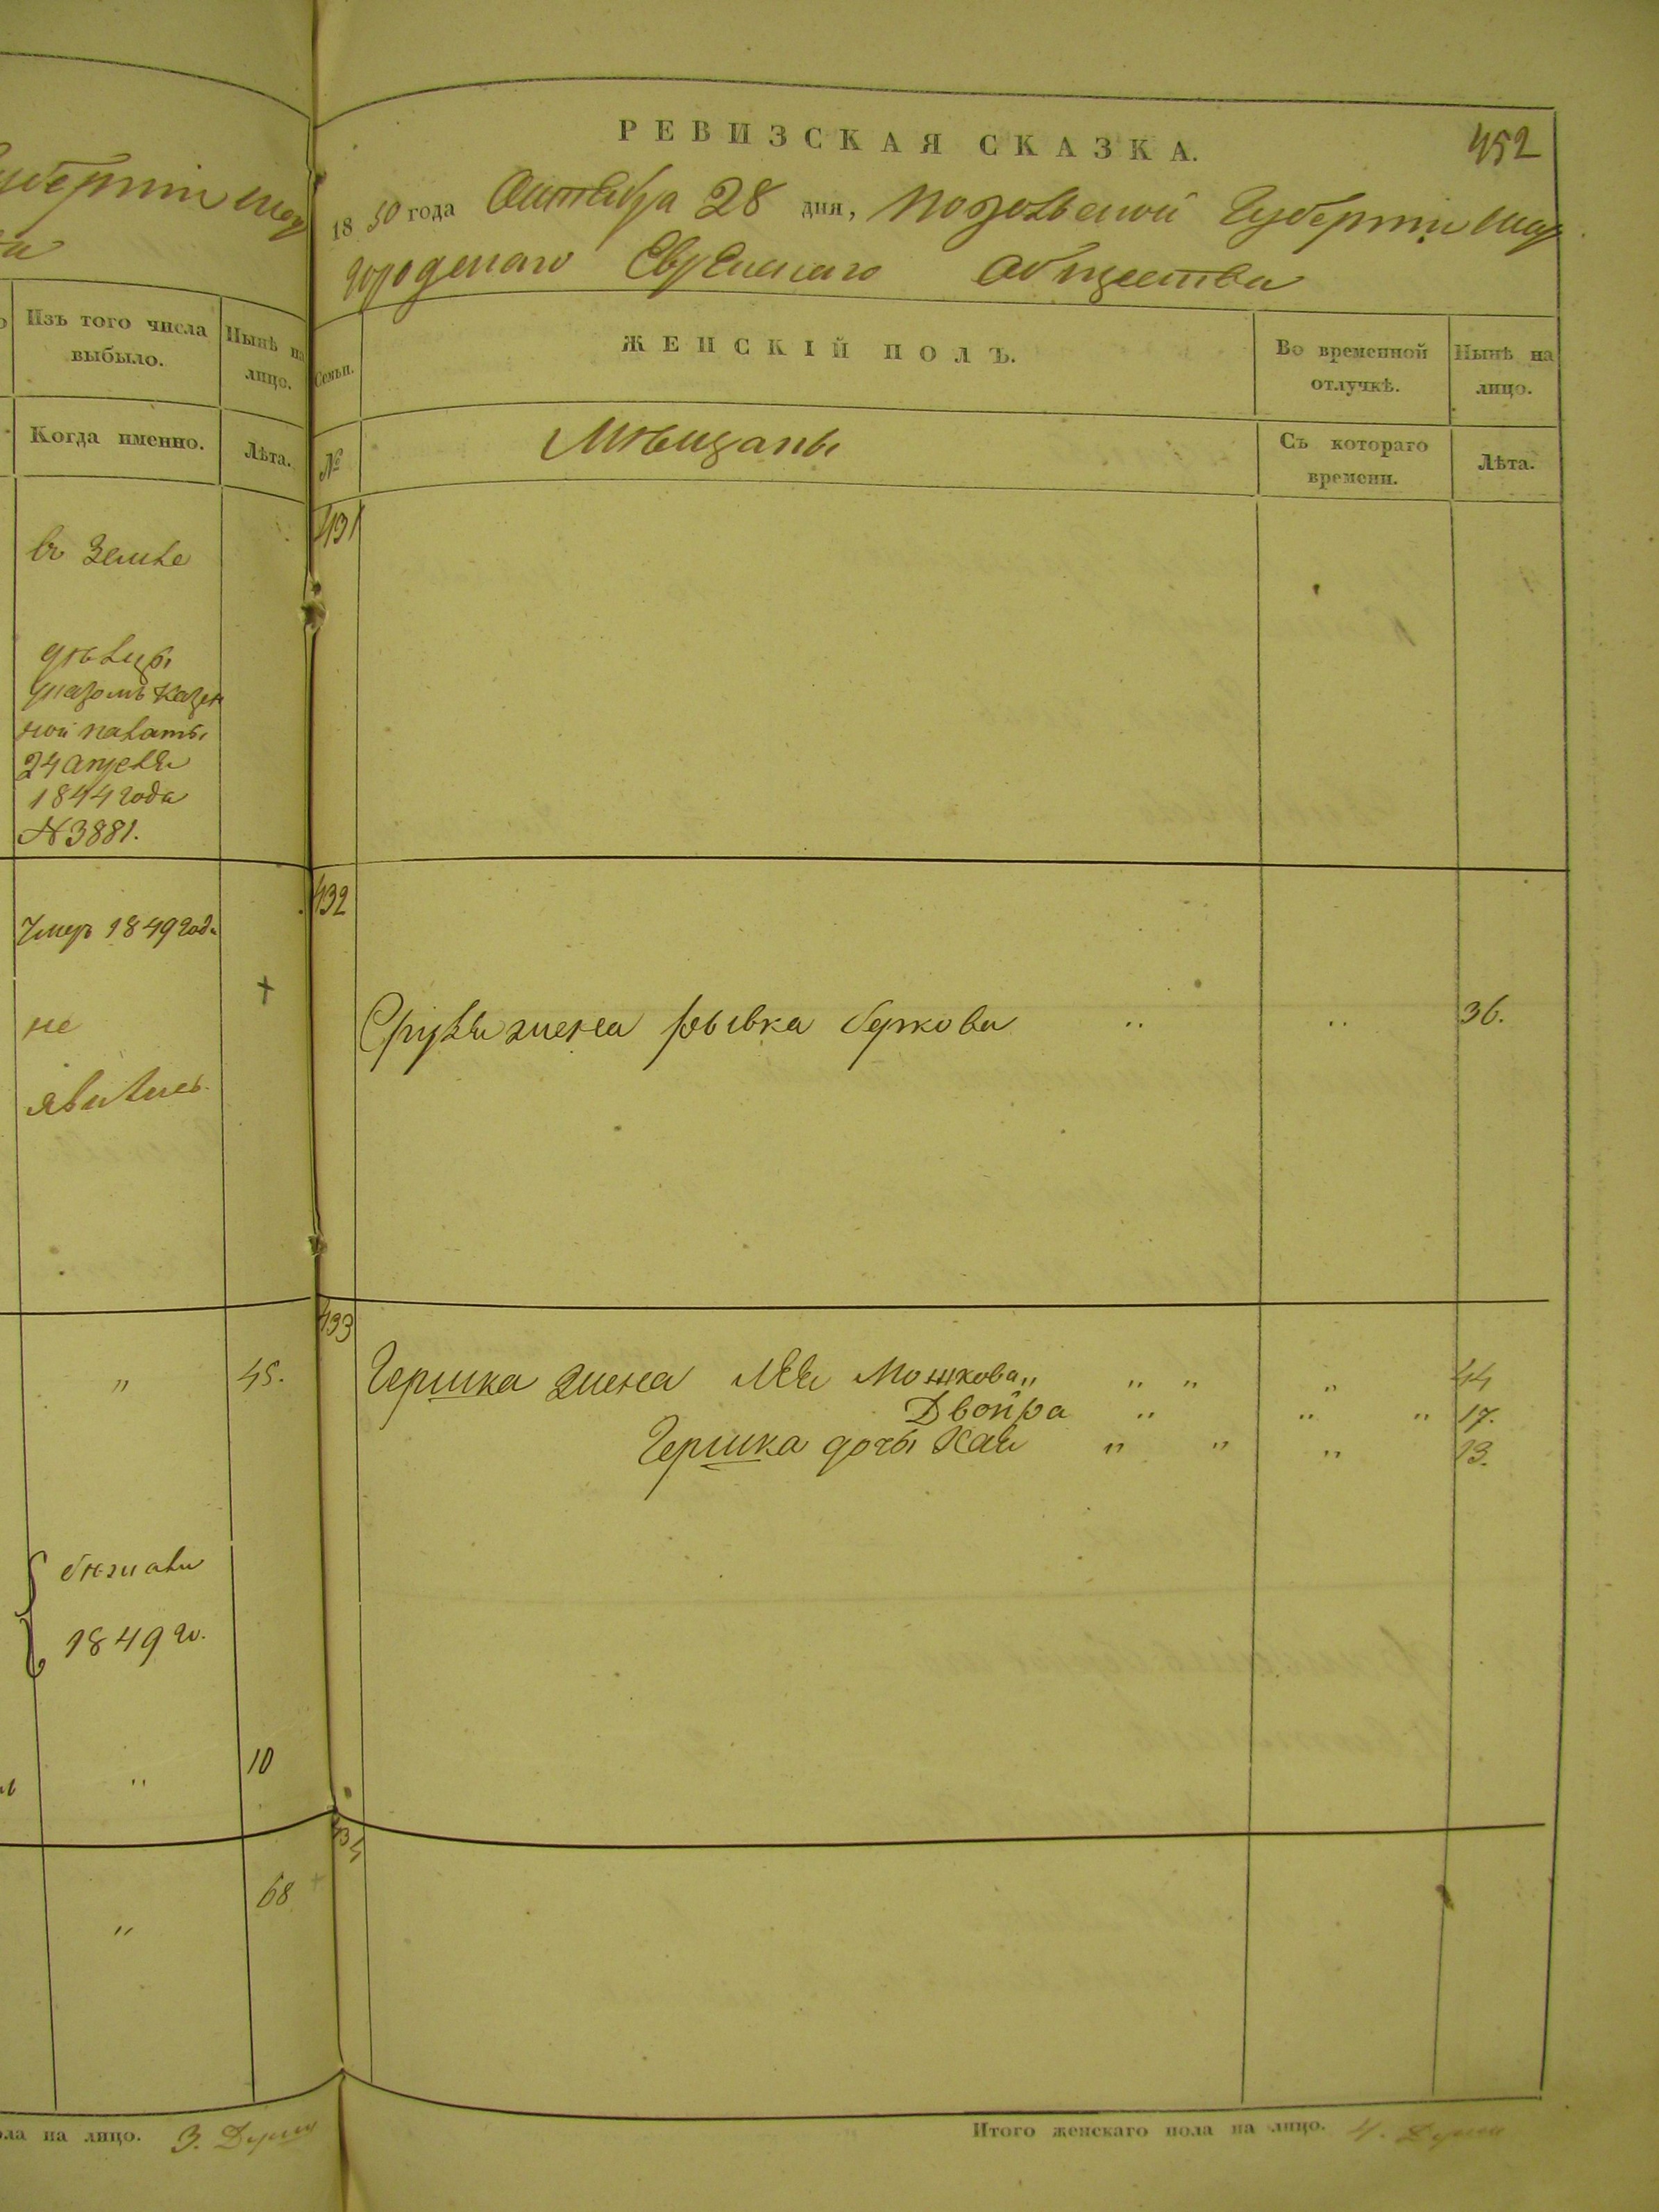 уберніи Шар
Изъ того числа
выбыло.
Нынѣ на
лицо.
Когда именно.
Лѣта.
въ Земле
указомъ Казен
ной палаты
24 апреля
1844 года
№ 3881.
Умеръ 1849 года
не
явились.
" 45.
бежали
1849 го.
" 10
" 68
ла на лицо. 3. Души
РЕВИЗСКАЯ СКАЗКА.
452
1850 года Октября 28 дня, Подольской Губерніи Шар
городскаго Еврейскаго Общества
Семьи.
ЖЕНСКІЙ ПОЛЪ.
Во временной
отлучкѣ.
Нынѣ на
лицо.
№
Мѣщаны
Съ котораго
времени.
Лѣта.
431
432
Сруля жена Рывка Беркова " " 36.
433
Гершка жена Лея Мошкова " " " " 44
Двойра " " " 17.
Гершка дочь Хая " " " 13.
434
Итого женскаго пола на лицо. 4. Души